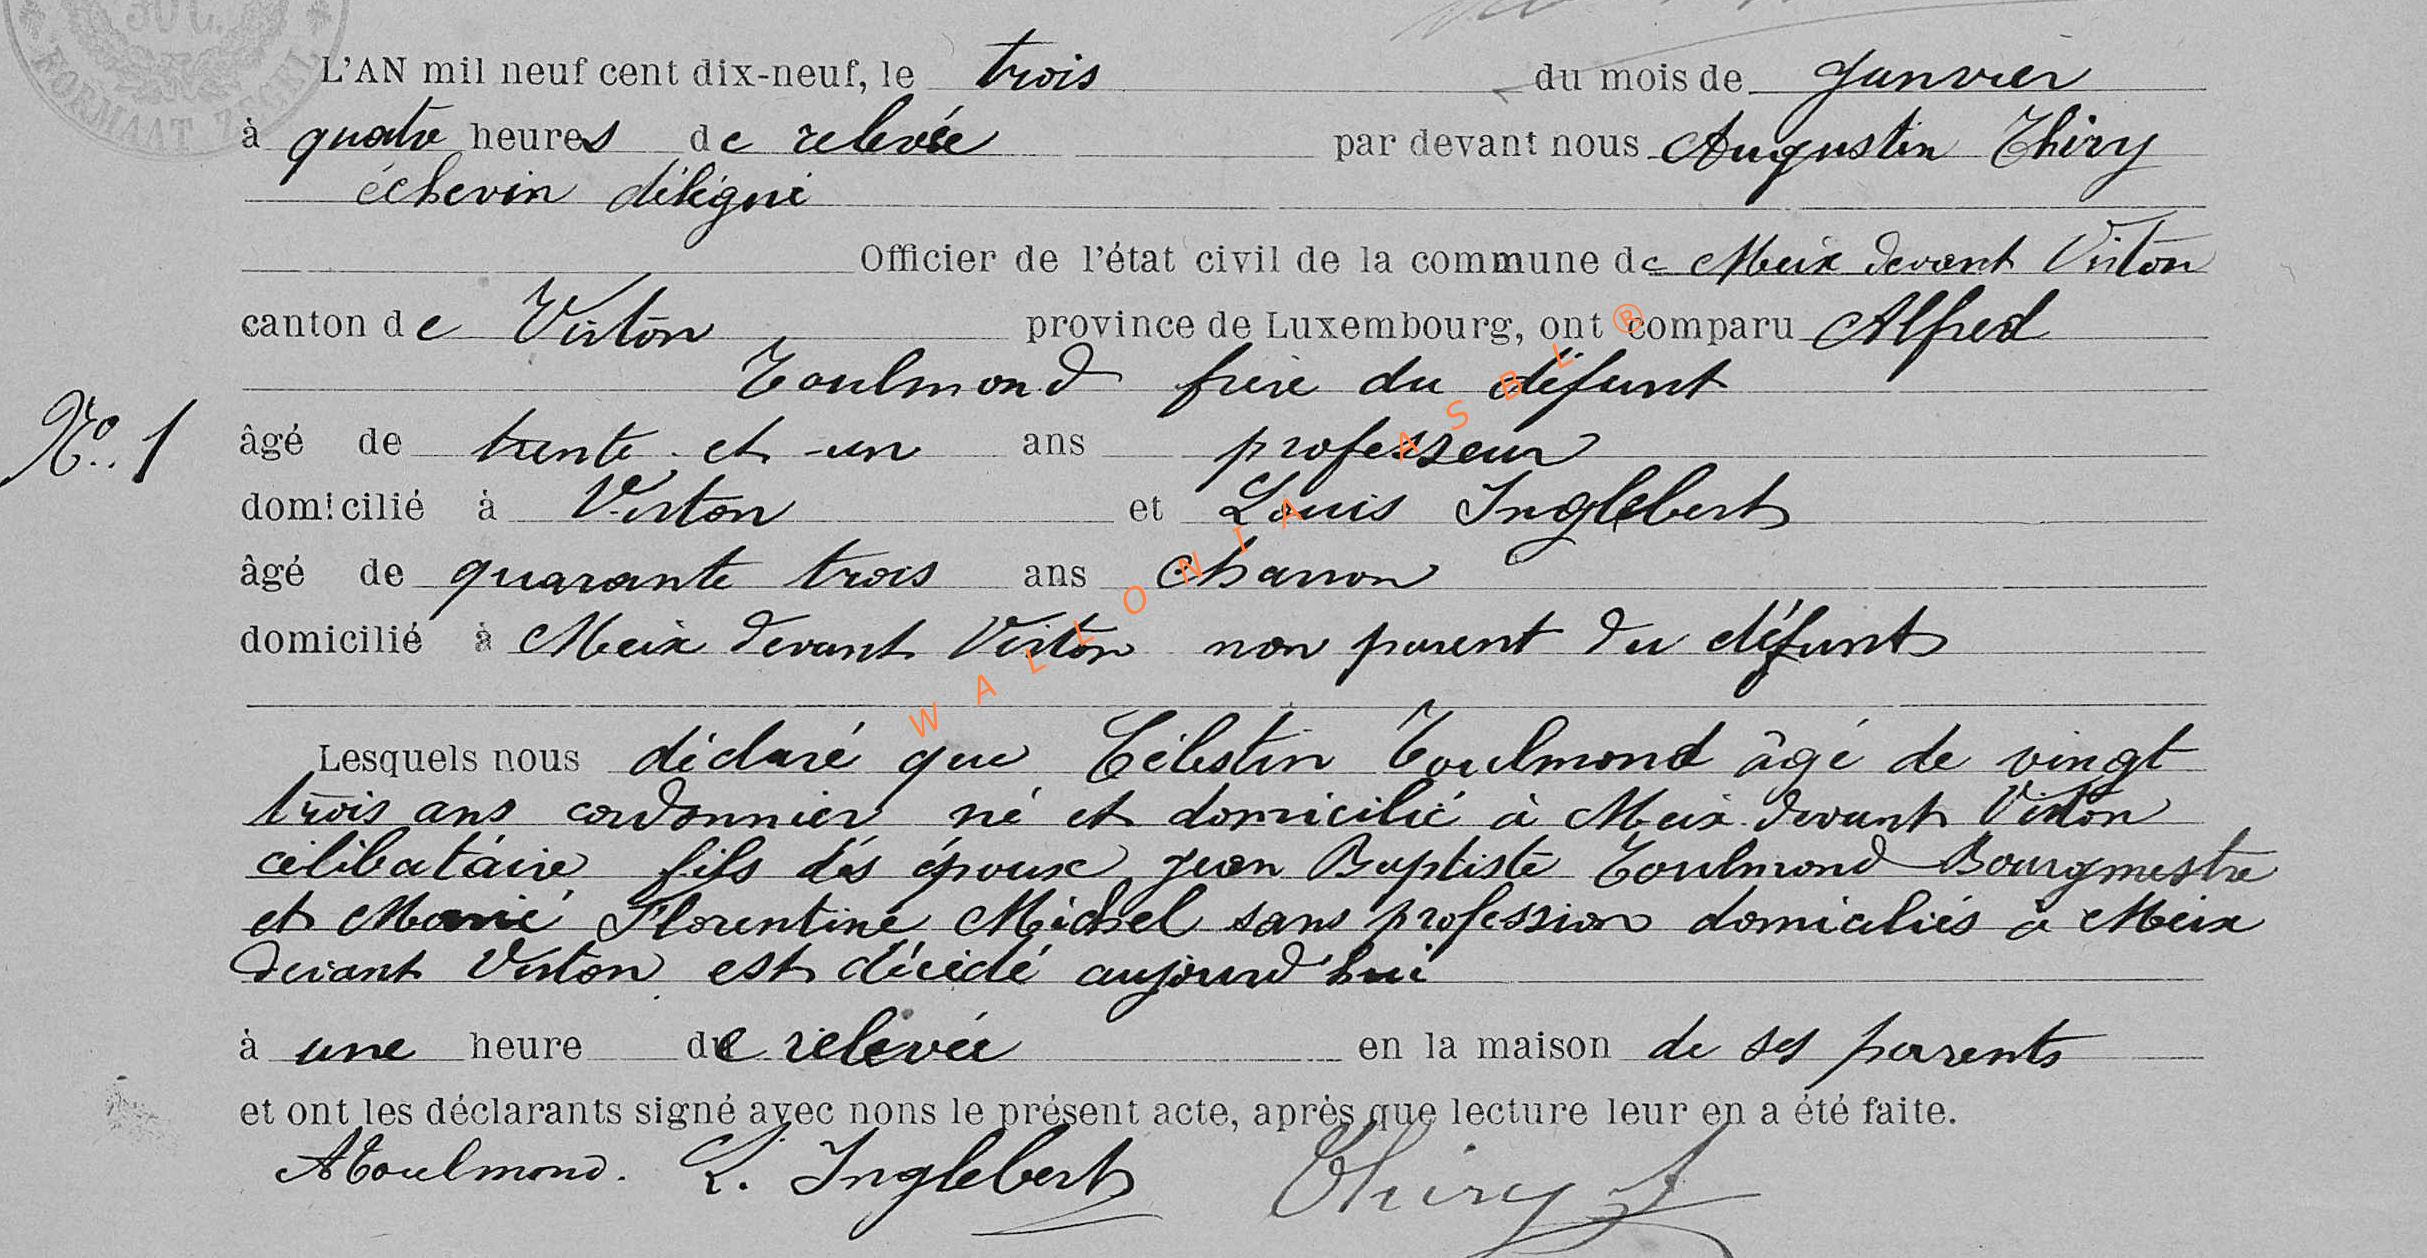 L'AN mil neuf cent dix-neuf, le trois du mois de Janvier
à quatre heures de relevée par devant nous Augustin Thiry
échevin délégué
Officier de l'état civil de la commune de Meix devant Virton
canton de Virton province de Luxembourg, ont comparu Alfred
Toulmond frère du défunt
No. 1
âgé de trente et un ans professeur
domicilié à Virton et Louis Inglebert
âgé de quarante trois ans charron
domicilié à Meix devant Virton non parent du défunt
WALLONIA ASBL ®
Lesquels nous déclaré que Célestin Toulmond âgé de vingt
trois ans cordonnier né et domicilié à Meix devant Virton
célibataire fils des époux Jean Baptiste Toulmond Bourgmestre
et Marie Florentine Michel sans profession domiciliés à Meix
devant Virton est décédé aujourd'hui
à une heure de relevée en la maison de ses parents
et ont les déclarants signé avec nons le présent acte, après que lecture leur en a été faite.
AToulmond. L. Inglebert Thiry A